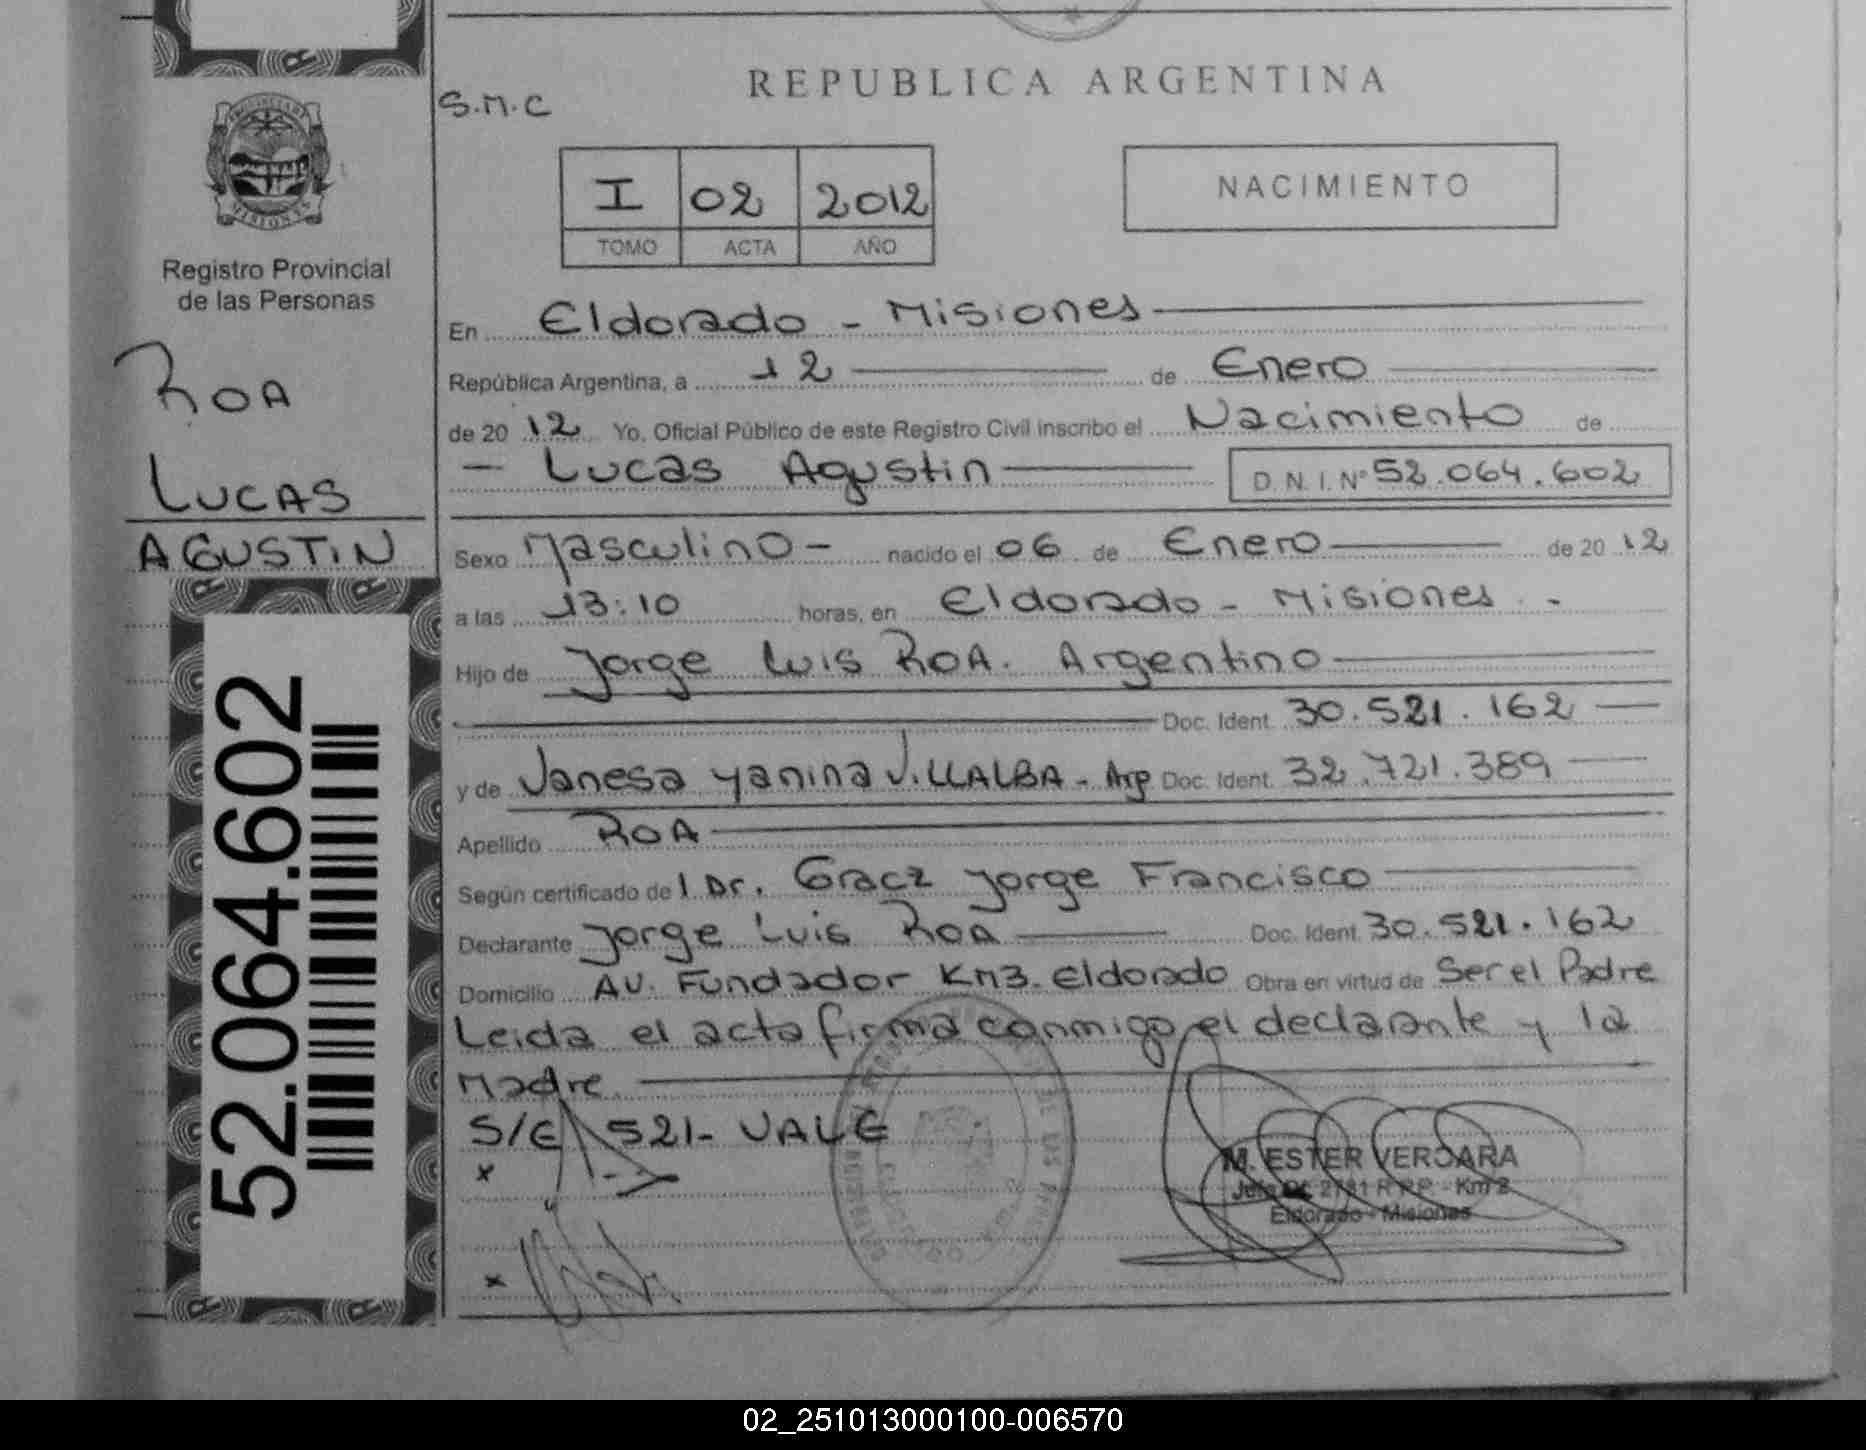 REPUBLICA ARGENTINA
S.M.C
I 02 2012
TOMO ACTA AÑO
NACIMIENTO
MISIONES
Registro Provincial
de las Personas
ROA
LUCAS
AGUSTIN
52.064.602
En Eldorado - Misiones
República Argentina, a 12 de Enero
de 20 12 Yo, Oficial Público de este Registro Civil inscribo el Nacimiento de
- Lucas Agustin D.N.I. N° 52.064.602
Sexo Masculino - nacido el 06 de Enero de 20 12
a las 13:10 horas, en Eldorado - Misiones . -
Hijo de Jorge Luis ROA. Argentino
Doc. Ident. 30.521.162
y de Vanesa Yanina VILLALBA - Arg Doc. Ident. 32.721.389
Apellido ROA
Según certificado de l Dr. Gracz Jorge Francisco
Declarante Jorge Luis Roa Doc. Ident. 30.521.162
Domicilio AV. Fundador Km3. Eldorado Obra en virtud de Ser el Padre
Leida el acta firma conmigo el declarante y la
Madre.
S/E 521- VALE
x
x
M. ESTER VERGARA
Eldorado - Misiones
02_251013000100-006570